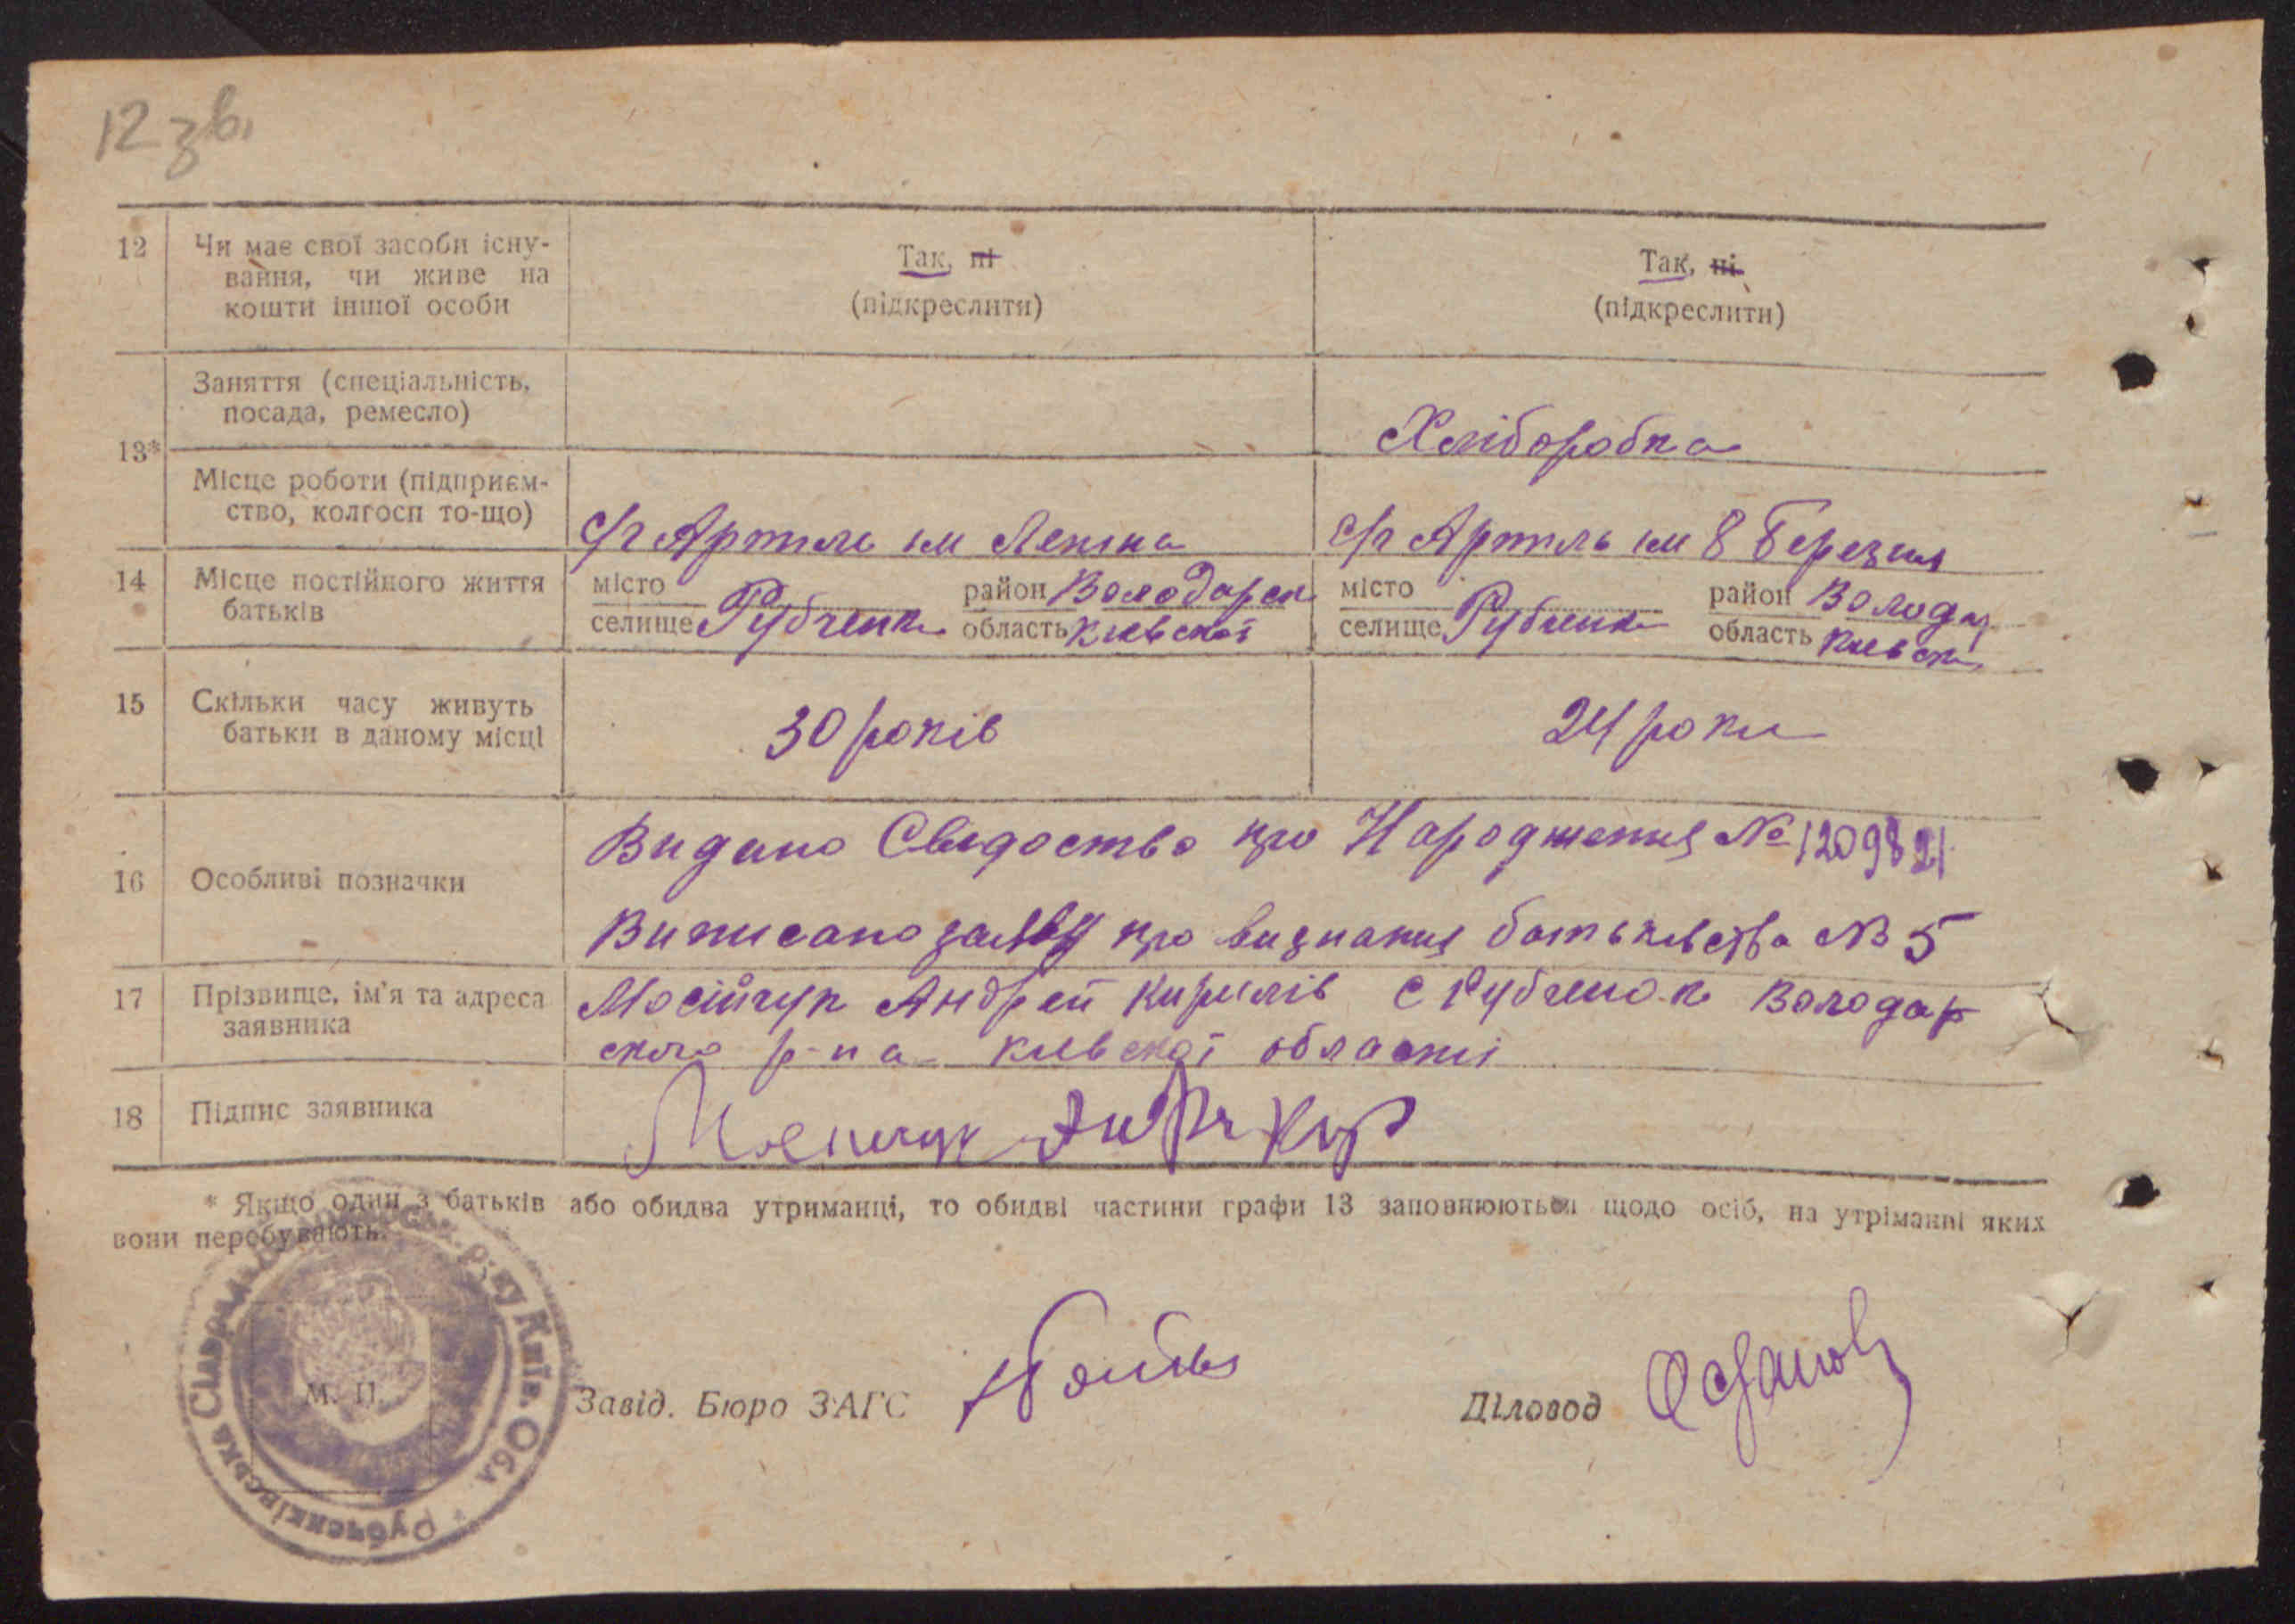 12 зв.
12 Чи має свої засоби існу-
вання, чи живе на
кошти іншої особи
Так, ні
(підкреслити)
Так, ні
(підкреслити)
13*
Заняття (спеціальність,
посада, ремесло)
Хліборобка
Місце роботи (підприєм-
ство, колгосп то-що)
С/г Артиль ім Леніна
с/г Артиль ім 8 Березня
14 Місце постійного життя
батьків
місто
селище Рубченк
район Володарск
область Киевскої
місто
селище Рубченк
район Володар
область Киевск
15 Скільки часу живуть
батьки в даному місці
30 років
24 роки
16 Особливі позначки
Видано Свідоство про Народження № 1209821
Виписано заяву про визнання батьківства № 5
17 Прізвище, ім'я та адреса
заявника
Мосійчук Андрей Кирилів с Рубченок Володар
ского р-на Киевскої области
18 Підпис заявника
Мосийчук Андр Кир
* Якщо один з батьків або обидва утриманці, то обидві частини графи 13 заповнюються щодо осіб, на утріманні яких
вони перебувають.
Рубченківська Сільрада
р-ну Київ. Обл.
М. П.
Завід. Бюро ЗАГС
Діловод